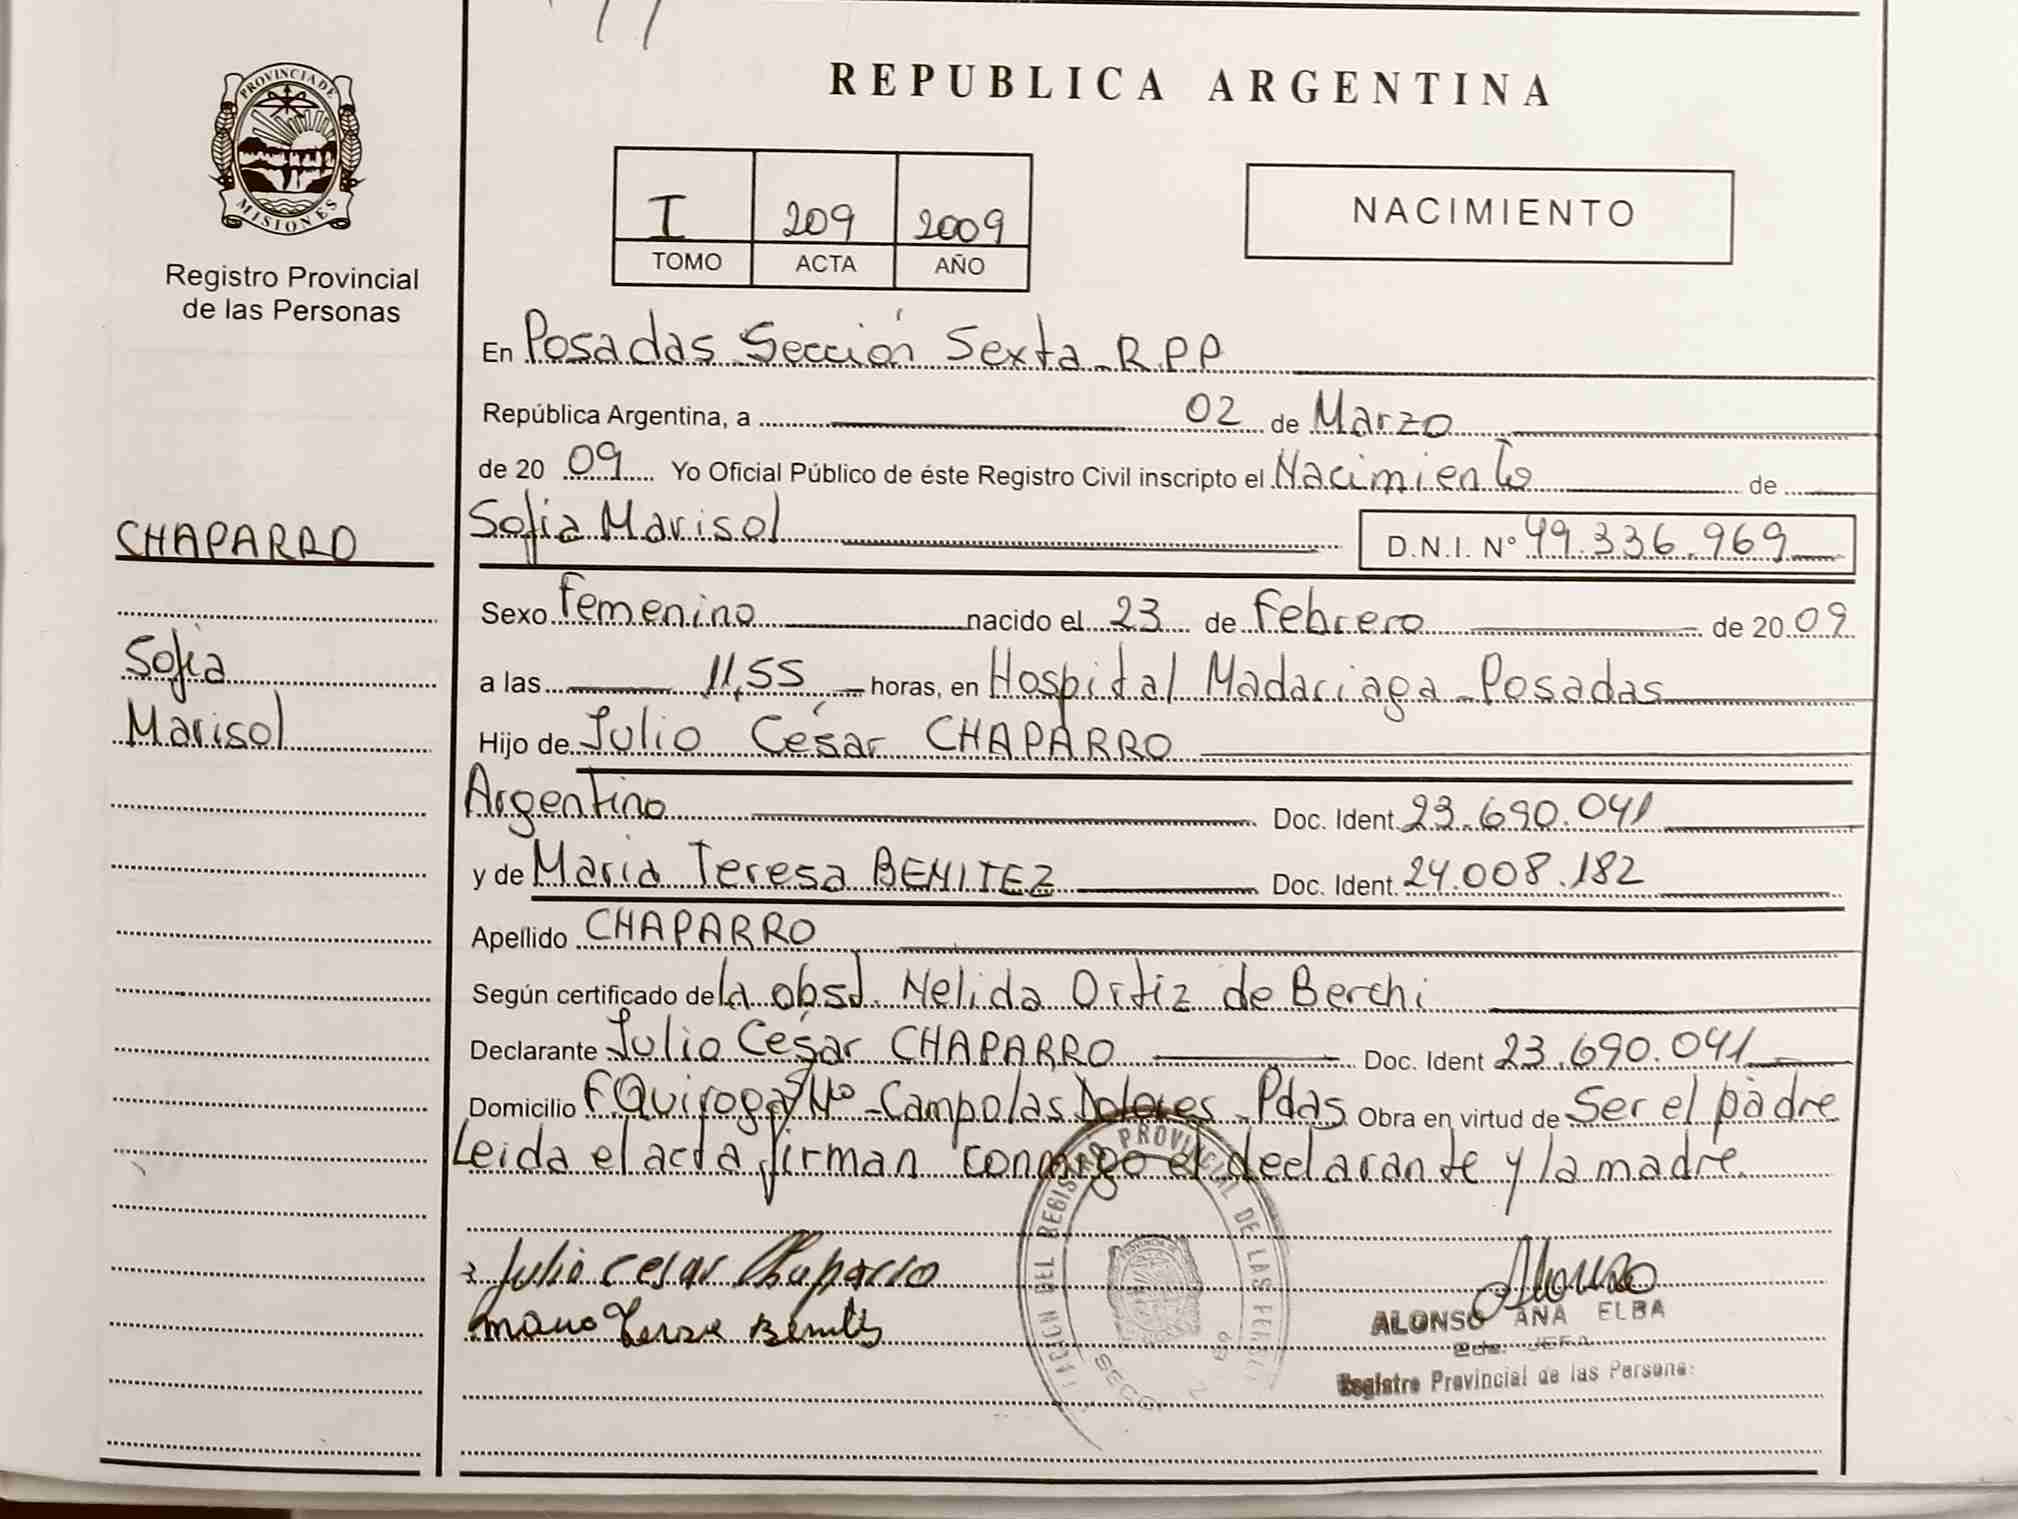 PROVINCIA DE
MISIONES
Registro Provincial
de las Personas
REPUBLICA ARGENTINA
I 209 2009
TOMO ACTA AÑO
NACIMIENTO
En Posadas Sección Sexta R.P.P
República Argentina, a 02 de Marzo
de 20 09 Yo Oficial Público de éste Registro Civil inscripto el Nacimiento de
CHAPARRO
Sofia Marisol D.N.I. Nº 49.336.969
Sexo Femenino nacido el 23 de Febrero de 20 09
Sofia
a las 11,55 horas, en Hospital Madariaga Posadas
Marisol
Hijo de Julio César CHAPARRO
Argentino Doc. Ident. 23.690.041
y de Maria Teresa BENITEZ Doc. Ident. 24.008.182
Apellido CHAPARRO
Según certificado de la obst. Nelida Ortiz de Berchi
Declarante Julio César CHAPARRO Doc. Ident 23.690.041
Domicilio F Quiroga S/Nº - Campo las Dolores - Pdas Obra en virtud de Ser el padre
Leida el acta firman conmigo el declarante y la madre.
Julio Cesar Chaparro
Teresa Benites
ALONSO ANA ELBA
JEFA
Registro Provincial de las Persona
REGISTRO PROVINCIAL DE LAS